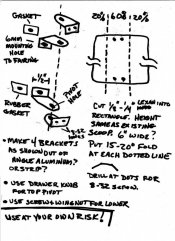 GASKET
6MM
MOUNTING
HOLE
TO FAIRING
1 1/2"
PIVOT HOLE
RUBBER
GASKET
8-32
HOLES
• MAKE 4 BRACKETS
AS SHOWN OUT OF
ANGLE ALUMINUM?
OR STRIP?
• USE DRAWER KNOB
FOR TOP PIVOT
• USE SCREW & WING NUT FOR LOWER
USE AT YOUR OWN RISK!
20% 60% 20%
CUT LEXAN INTO
RECTANGLE. HEIGHT
SAME AS EXISTING
SCOOP. 6" WIDE?
PUT 15-20° FOLD
AT EACH DOTTED LINE
DRILL AT DOTS FOR
8-32 SCREW.